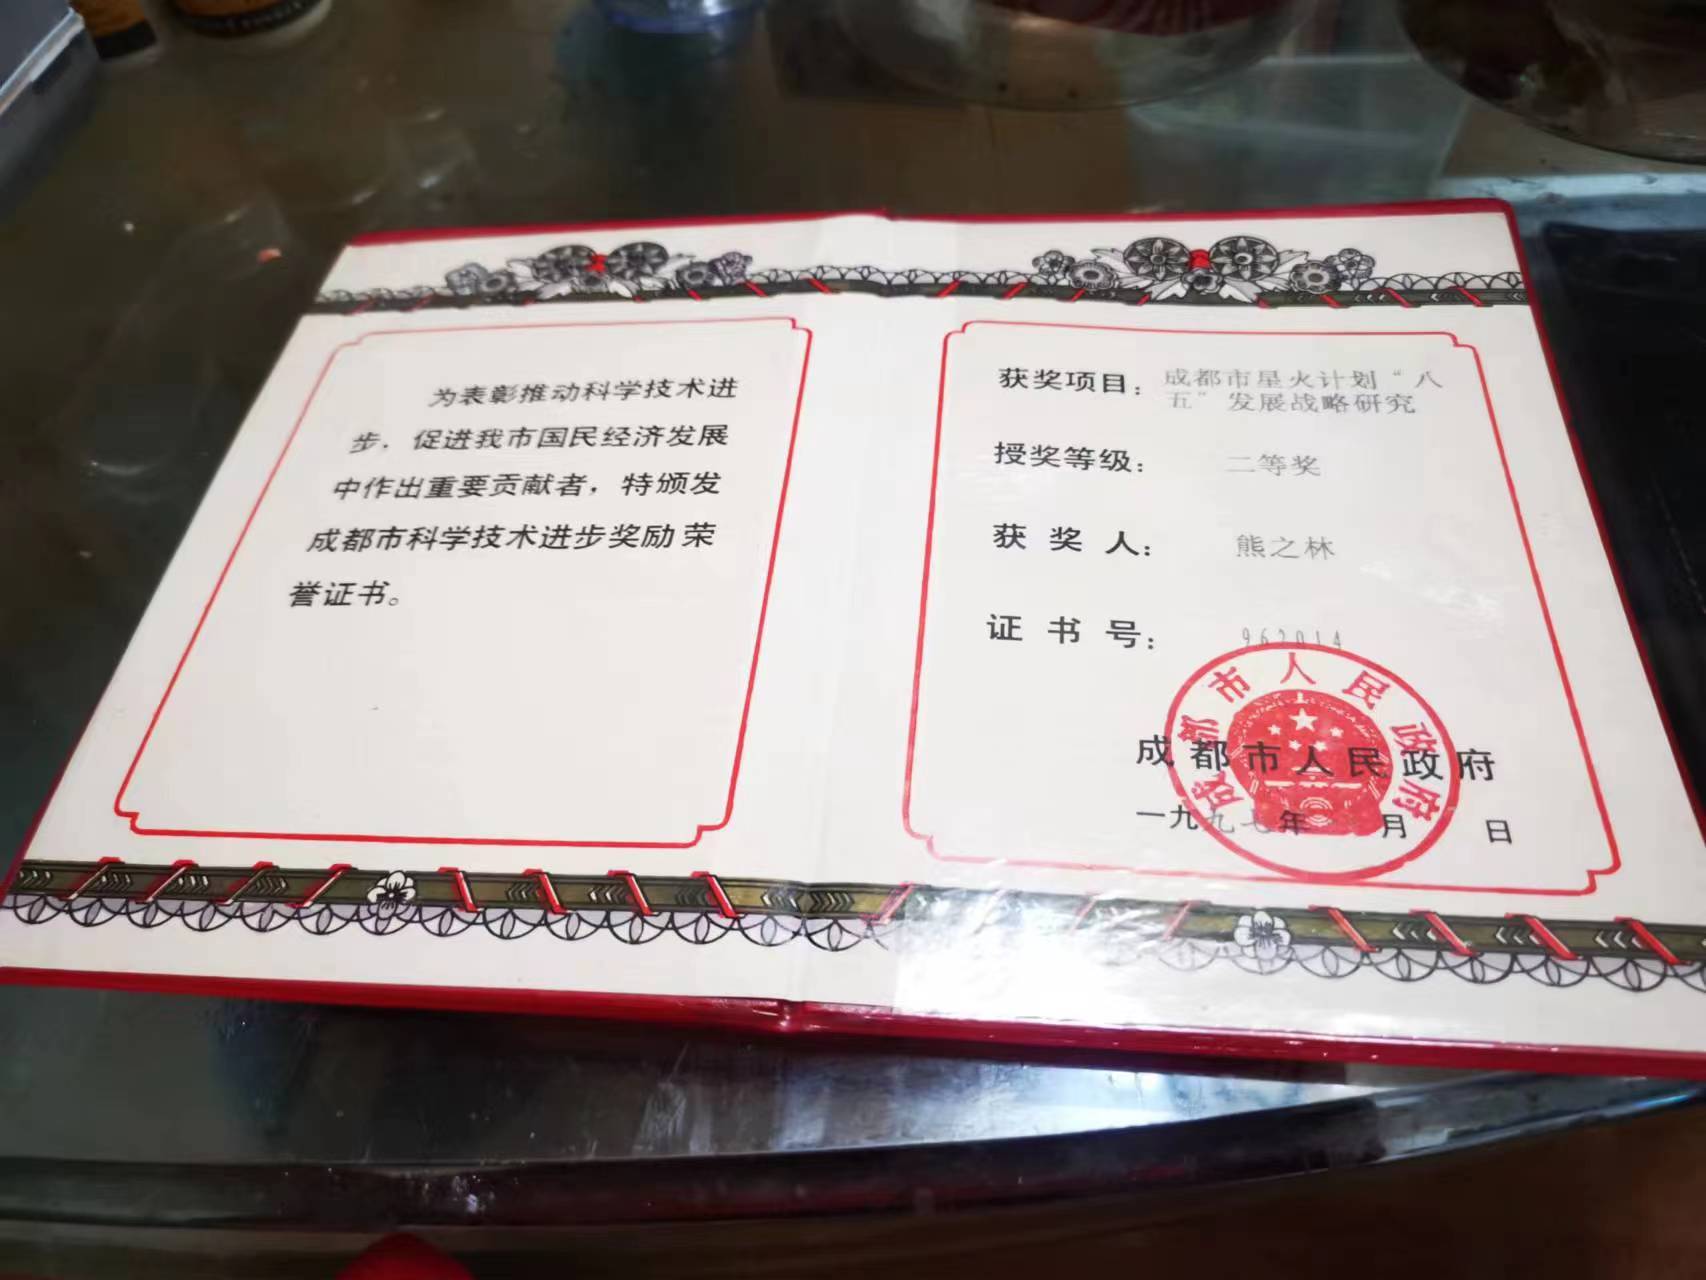 为表彰推动科学技术进
步，促进我市国民经济发展
中作出重要贡献者，特颁发
成都市科学技术进步奖励荣
誉证书。
获奖项目：成都市星火计划“八
五”发展战略研究
授奖等级：二等奖
获奖人：熊之林
证书号：962014
成都市人民政府
成都市人民政府
一九九七年 月 日